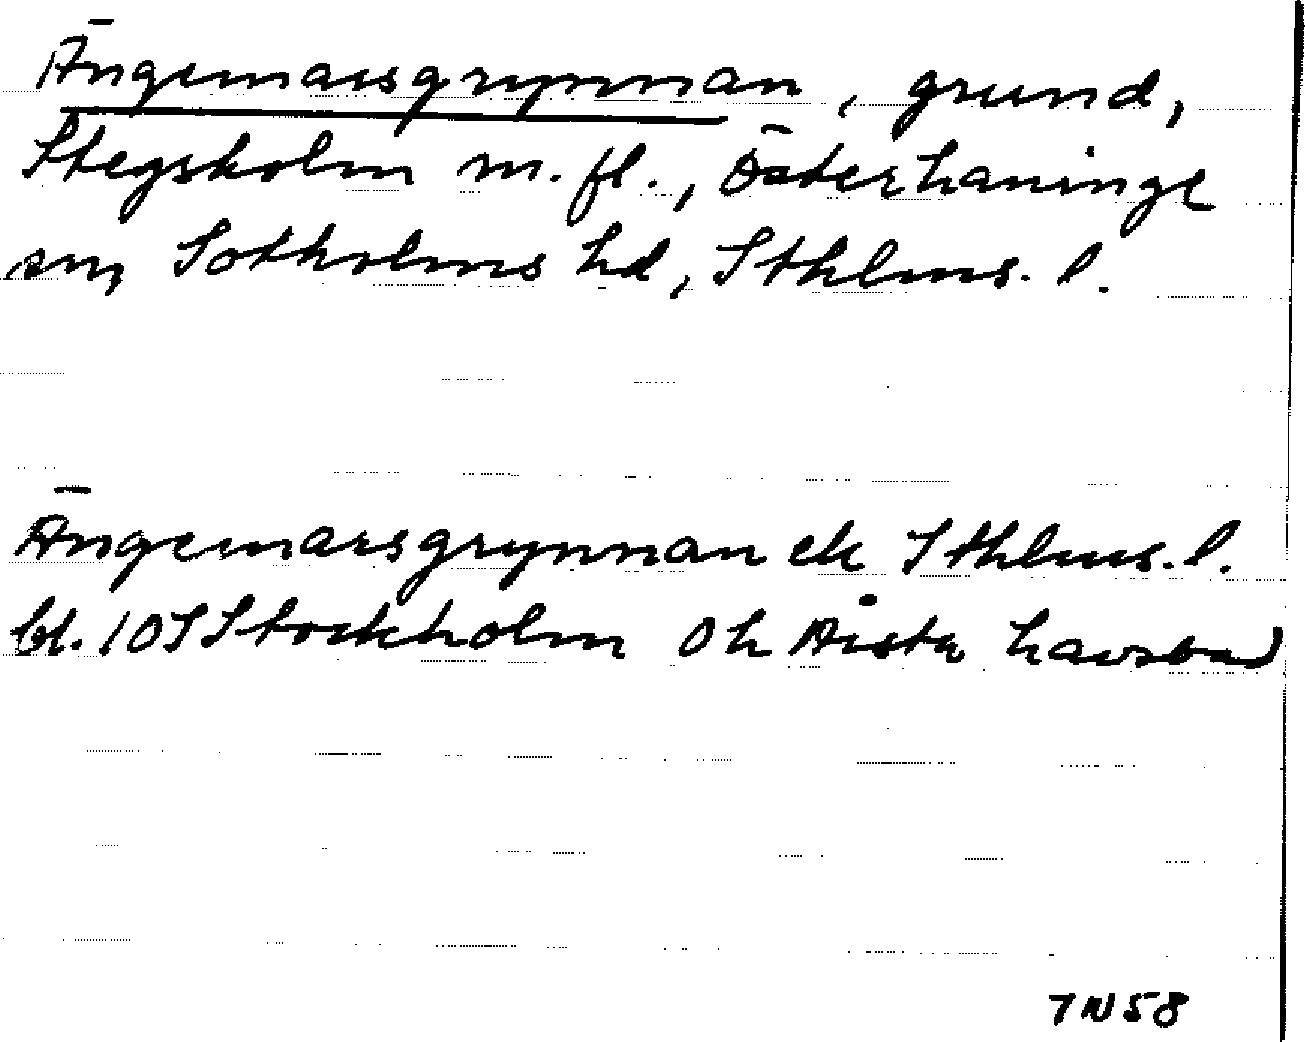 Ängemarsgrynnan, grund,
Stegsholm m.fl., Österhaninge
sn, Sotholms hd, Sthlms. l.
Ängemarsgrynnan ek Sthlms. l.
bl. 10I Stockholm Oh Årsta havsbad
7N58